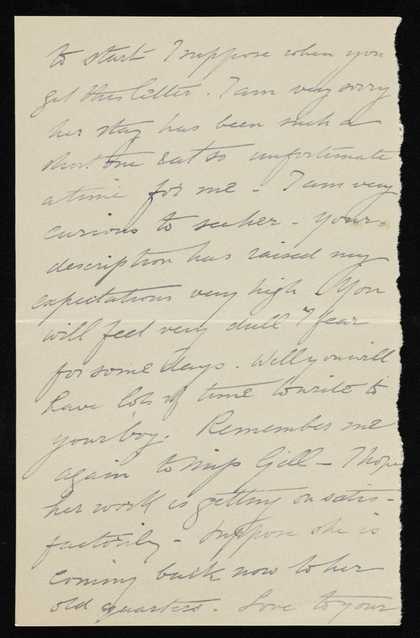 to start I suppose when you
get this letter. I am very sorry
her stay has been such a
short one & at so unfortunate
a time for me - I am very
curious to see her - Your
description has raised my
expectations very high You
will feel very dull I fear
for some days. Well you will
have lots of time to write to
your boy. Remember me
again to Miss Gill - I hope
her work is getting on satis-
factorily - Suppose she is
coming back now to her
old quarters. Love to your